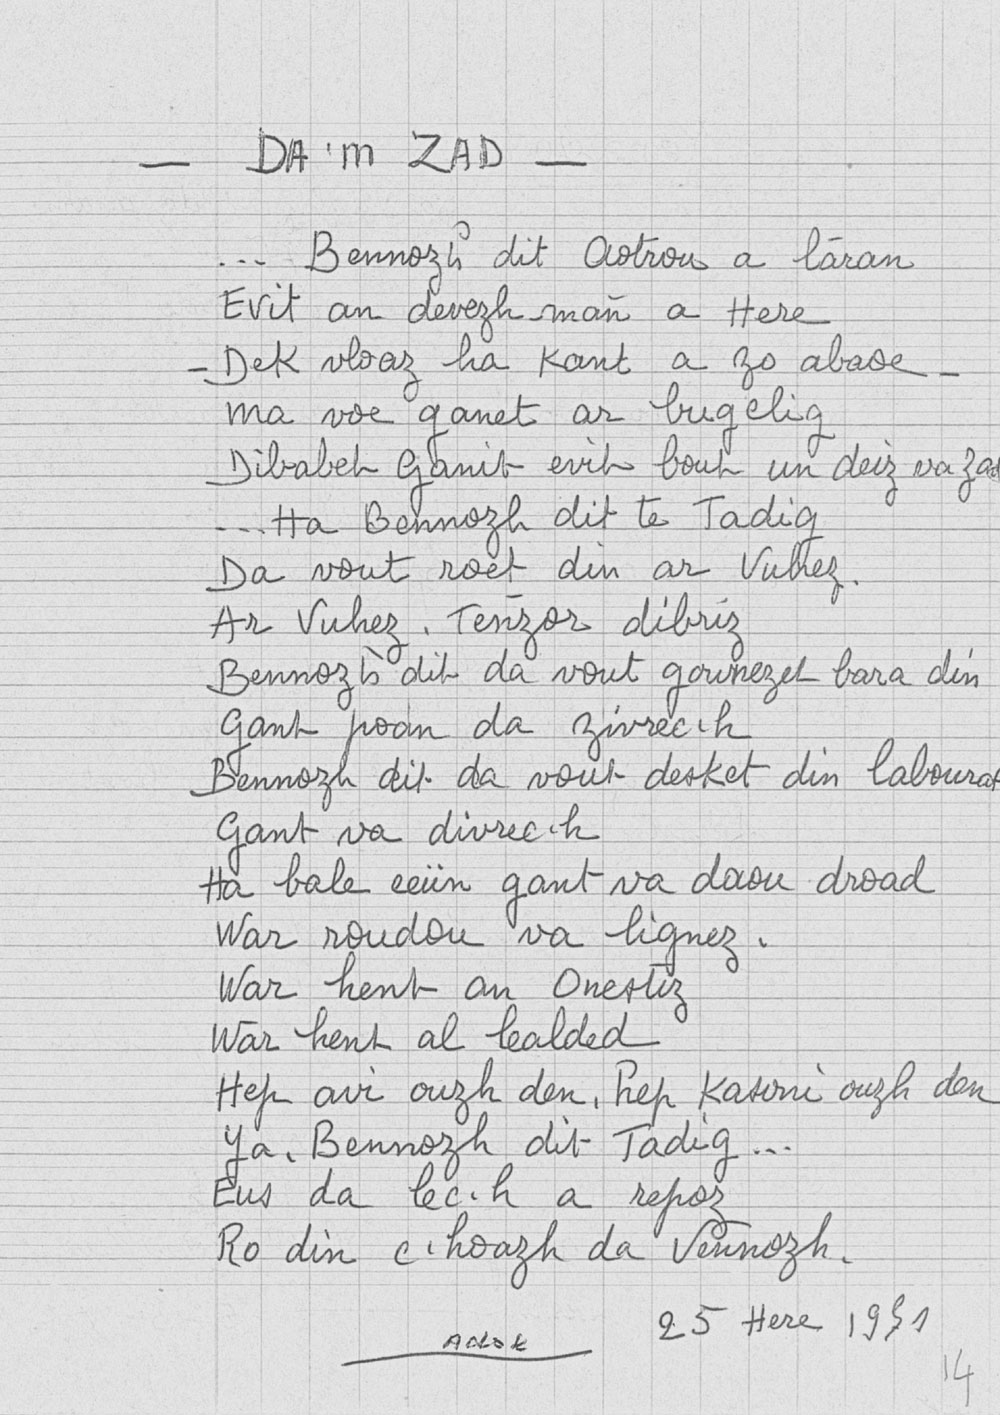 — DA 'm ZAD —
... Bennozh dit Aotrou a lâran
Evit an devezh-mañ a Here
- Dek vloaz ha kant a zo abaoe -
Ma voe ganet ar bugelig
Dibabet Ganit evit bout un deiz va zad
... Ha Bennozh dit te Tadig
Da vout roet din ar Vuhez.
Ar Vuhez. Teñzor dibriz
Bennozh dit da vout gounezet bara din
Gant poan da zivrec'h
Bennozh dit da vout desket din labourat
Gant va divrec'h
Ha bale eeün gant va daou droad
War roudou va lignez.
War hent an Onestiz
War hent al lealded
Hep avi ouzh den, hep kasoni ouzh den
Ya, Bennozh dit Tadig...
Eus da lec'h a repoz
Ro din c'hoazh da Vennozh.
25 Here 19
14